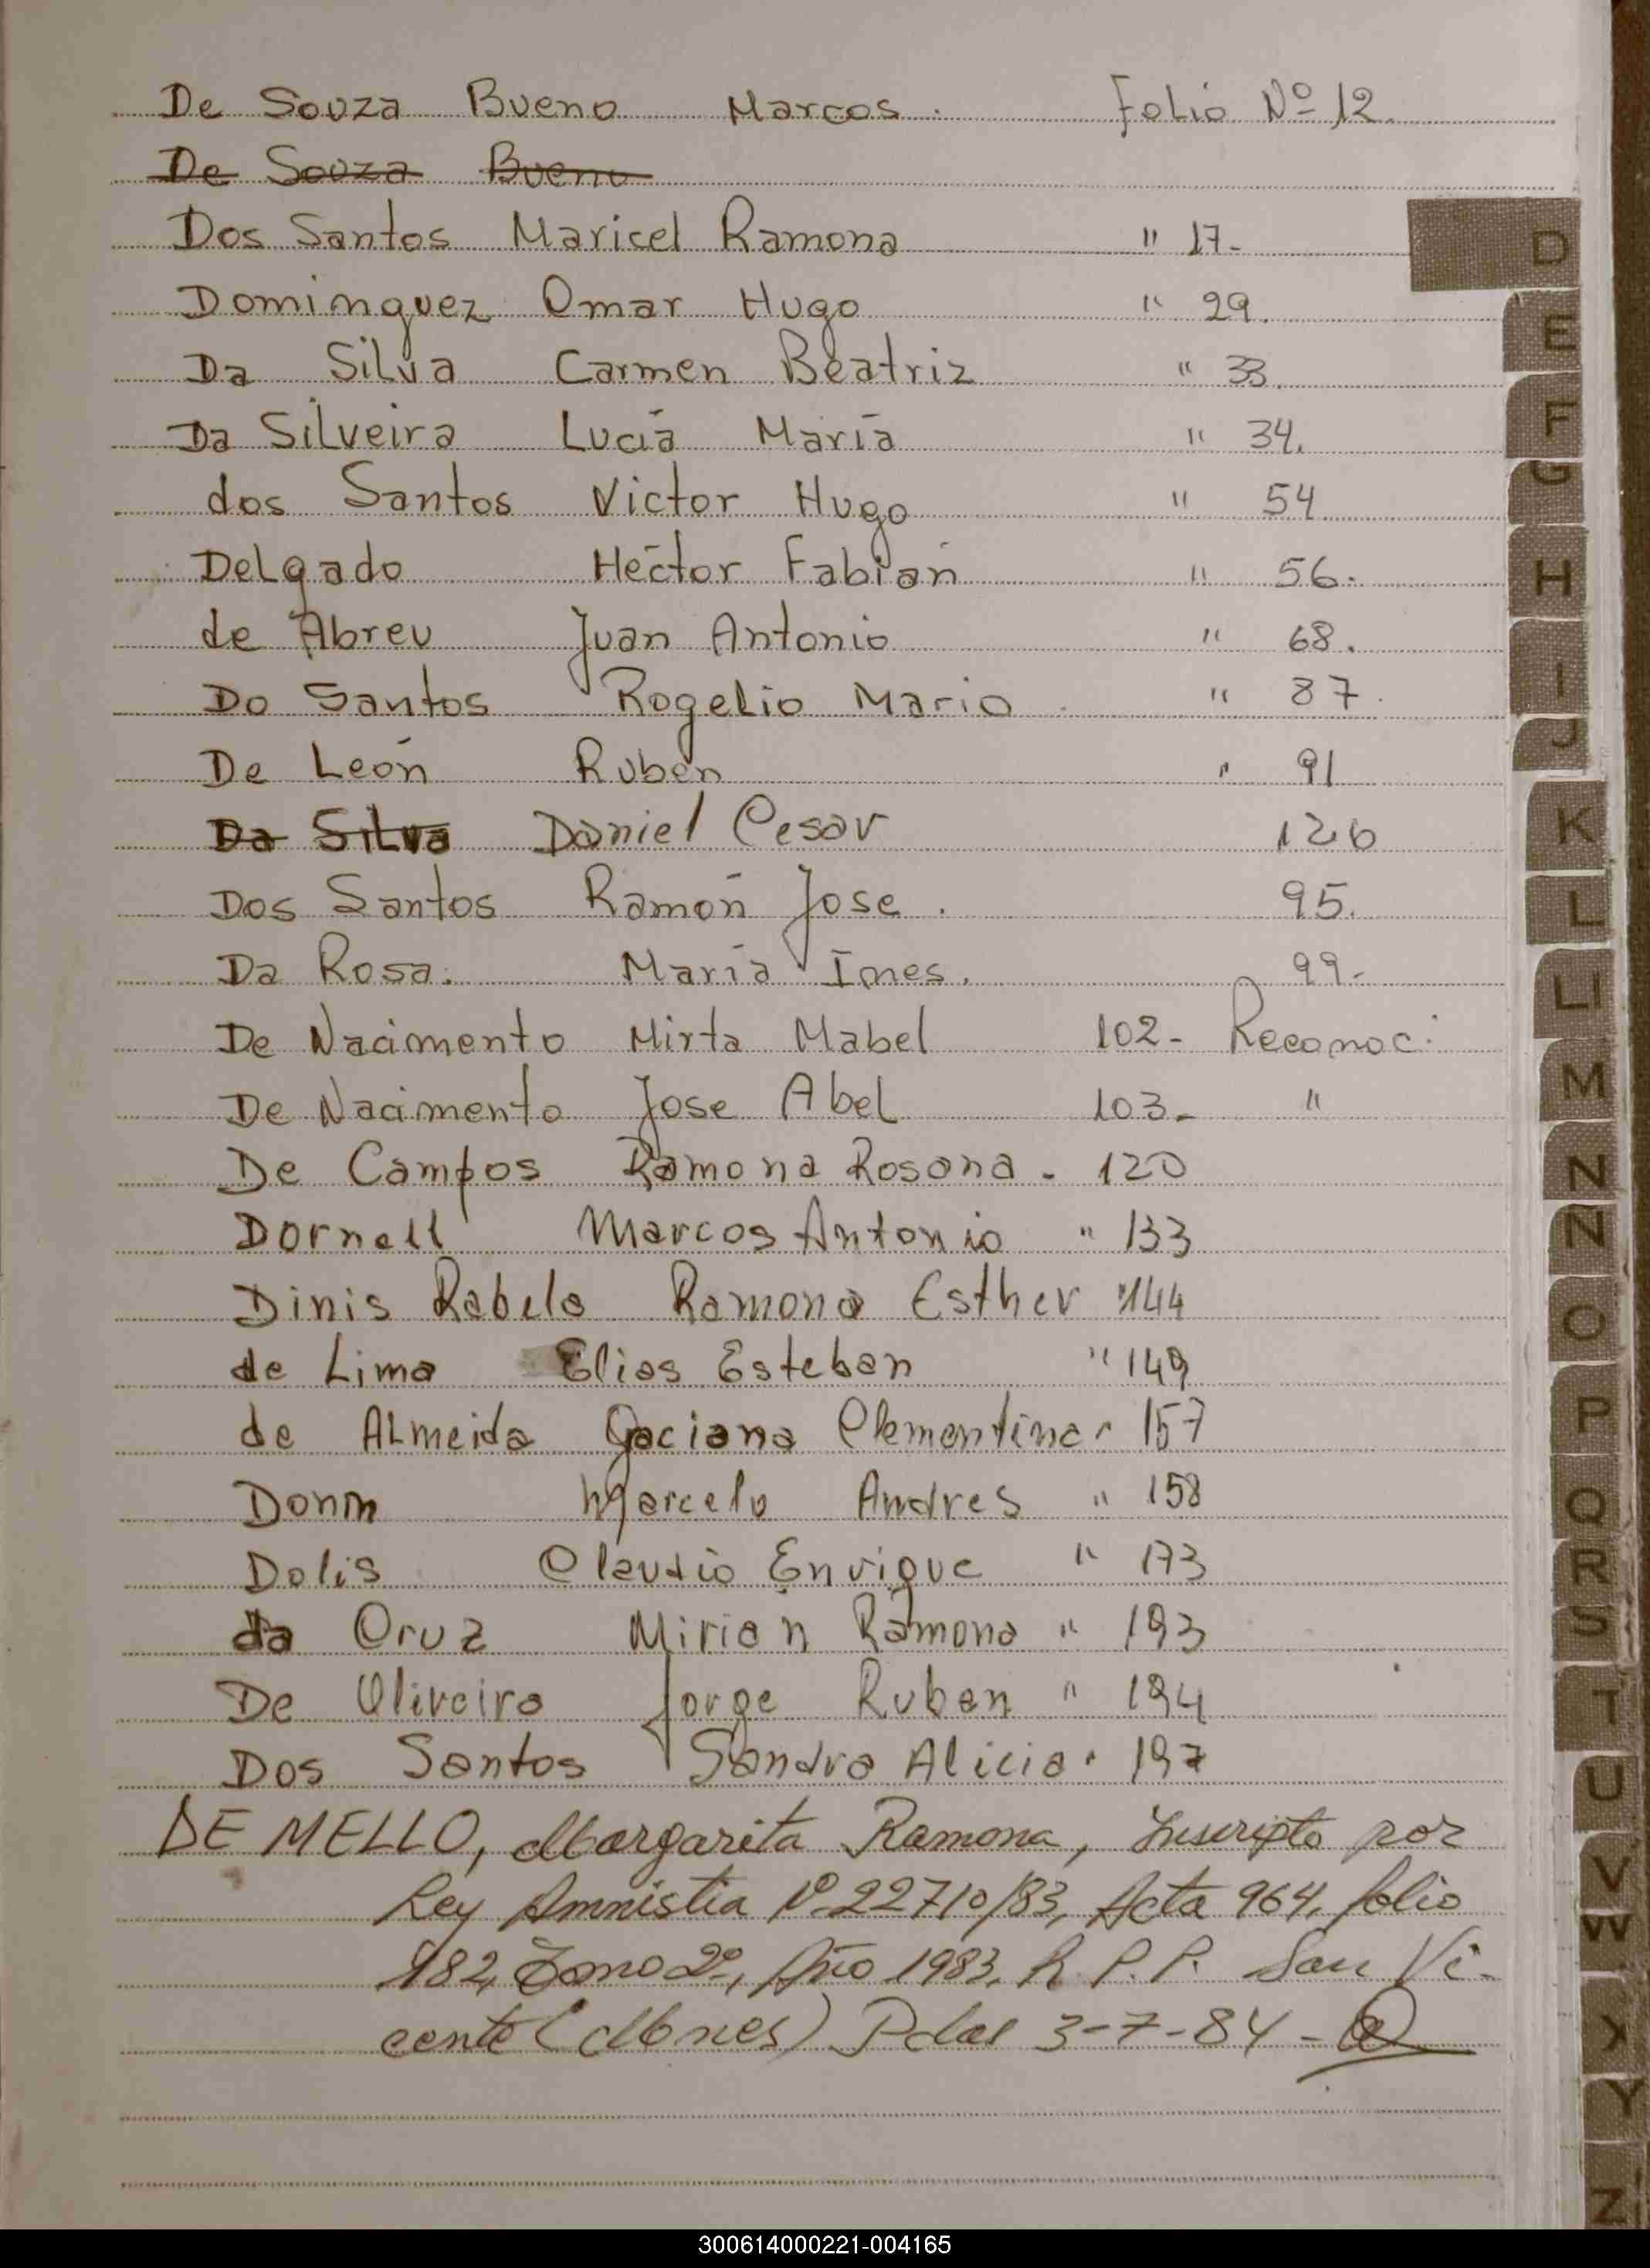 De Souza Bueno Marcos. Folio Nº 12.
De Souza Bueno
Dos Santos Maricel Ramona " 17-
Dominguez Omar Hugo " 29.
Da Silva Carmen Beatriz " 33.
Da Silveira Lucía María " 34.
dos Santos Victor Hugo " 54
Delgado Héctor Fabián " 56.
de Abreu Juan Antonio " 68.
Do Santos Rogelio Mario " 87.
De León Ruben " 91
Da Silva Daniel Cesar 126
Dos Santos Ramón Jose. 95.
Da Rosa. María Ines. 99-
De Nacimento Mirta Mabel 102- Reconoc:
De Nacimento Jose Abel 103- "
De Campos Ramona Rosana - 120
Dornell Marcos Antonio " 133
Dinis Rabelo Ramona Esther " 144
de Lima Elias Esteban " 149
de ALmeida Clementina " 157
Marcelo Andres " 158
Dolis Claudio Enrique " 173
da Cruz Mirian Ramona " 193
De Oliveira Jorge Ruben " 194
Dos Santos Sandra Alicia " 197
DE MELLO, Margarita Ramona, Inscripta por
Ley Amnistia Nº 22710/83, Acta 964, folio
182, Tomo 2º, Año 1983, R.P.P. San Vi-
cente (Mnes) Pdas 3-7-84-
D
E
F
G
H
I
J
K
L
Ll
M
N
Ñ
O
P
Q
R
S
T
U
V
W
X
Y
Z
300614000221-004165